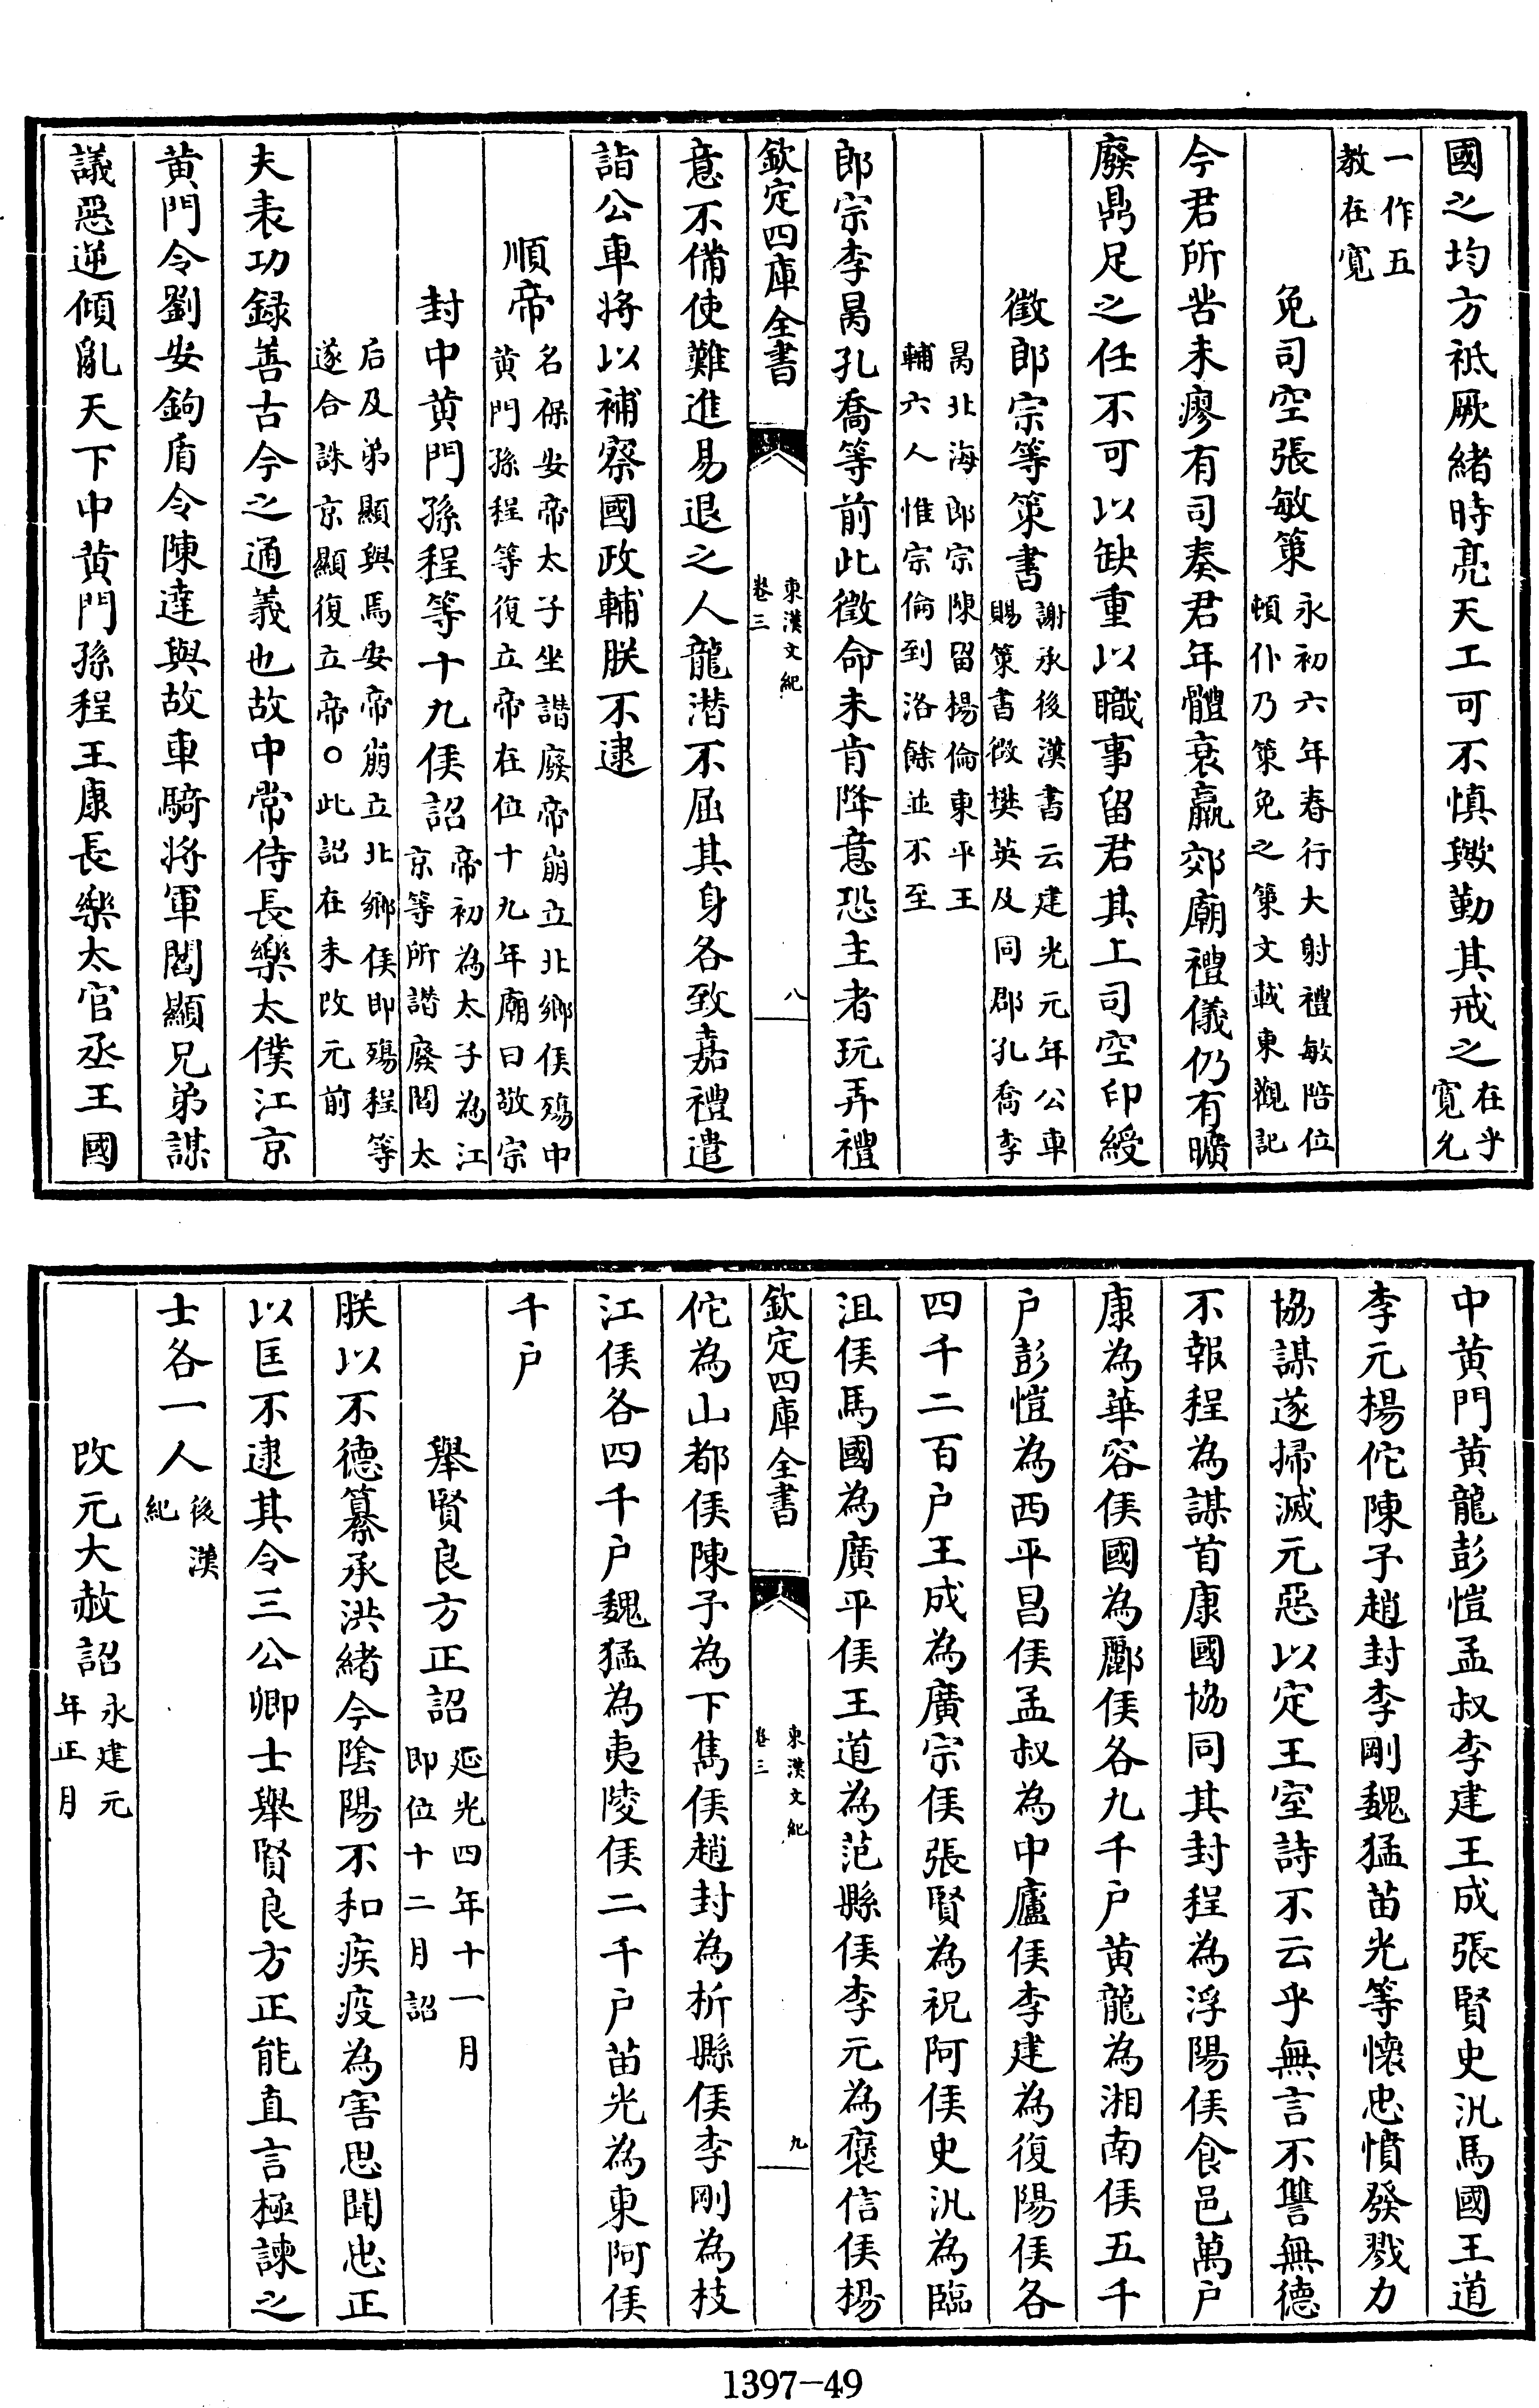 國之均方祗厥緒時亮天工可不慎歟勤其戒之在乎寛允
一作五教在寛
免司空張敏策永初六年春行大射禮敏陪位頓仆乃策免之策文載東觀記
今君所苦未瘳有司奏君年體衰羸郊廟禮儀仍有曠
廢鼎足之任不可以缺重以職事留君其上司空印綬
徵郎宗等策書謝承後漢書云建光元年公車賜策書徵樊英及同郡孔喬李
昺北海郎宗陳留楊倫東平王輔六人惟宗倫到洛餘並不至
郎宗李昺孔喬等前此徵命未肯降意恐主者玩弄禮
欽定四庫全書 東漢文紀 卷三 八
意不備使難進易退之人龍潛不屈其身各致嘉禮遣
詣公車將以補察國政輔朕不逮
順帝名保安帝太子坐譖廢帝崩立北鄉侯殤中黃門孫程等復立帝在位十九年廟曰敬宗
封中黃門孫程等十九侯詔帝初為太子為江京等所譖廢閻太
后及弟顯與焉安帝崩立北鄉侯即殤程等遂合誅京顯復立帝○此詔在未改元前
夫表功録善古今之通義也故中常侍長樂太僕江京
黃門令劉安鉤盾令陳達與故車騎將軍閻顯兄弟謀
議惡逆傾亂天下中黃門孫程王康長樂太官丞王國
中黃門黃龍彭愷孟叔李建王成張賢史汎馬國王道
李元楊佗陳予趙封李剛魏猛苗光等懷忠憤發戮力
協謀遂掃滅元惡以定王室詩不云乎無言不讐無德
不報程為謀首康國協同其封程為浮陽侯食邑萬戶
康為華容侯國為酈侯各九千戶黃龍為湘南侯五千
戶彭愷為西平昌侯孟叔為中廬侯李建為復陽侯各
四千二百戶王成為廣宗侯張賢為祝阿侯史汎為臨
沮侯馬國為廣平侯王道為范縣侯李元為褒信侯楊
欽定四庫全書 東漢文紀 卷三 九
佗為山都侯陳予為下雋侯趙封為析縣侯李剛為枝
江侯各四千戶魏猛為夷陵侯二千戶苗光為東阿侯
千戶
舉賢良方正詔延光四年十一月即位十二月詔
朕以不德纂承洪緒今陰陽不和疾疫為害思聞忠正
以匡不逮其令三公卿士舉賢良方正能直言極諫之
士各一人後漢紀
改元大赦詔永建元年正月
1397-49